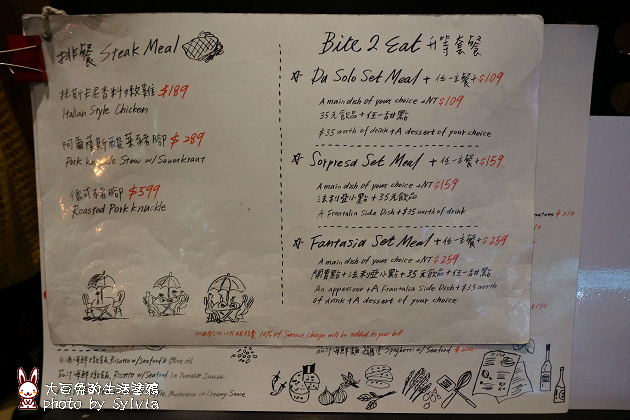 排餐 Steak Meal
托斯卡尼香料嫩雞 $189
Italian Style Chicken
阿爾薩斯酸菜豬腳 $289
Pork Knuckle Stew w/ Sauerkraut
德式豬腳 $599
Roasted Pork Knuckle
Bite 2 Eat 升等套餐
Da Solo Set Meal + 任一主餐+$109
A main dish of your choice + NT$109
35元飲品+任一甜點
$35 worth of drink + A dessert of your choice
Sorpresa Set Meal + 任一主餐+$159
A main dish of your choice + NT$159
法利亞小點+35元飲品
A Frantalia Side Dish + $35 worth of drink
Fantasia Set Meal + 任一主餐+$259
A main dish of your choice + NT$259
開胃點+法利亞小點+35元飲品+任一甜點
An appetizer + A Frantalia Side Dish + $35 worth
of drink + A dessert of your choice
10% of Service Charge will be added to your bill
$210
$190
Risotto w/ Seafood & Olive oil
Risotto w/ Seafood in Tomato Sauce
Spaghetti w/ Seafood $220
Mushroom in Creamy Sauce
大豆兔的生活塗鴉
photo by Sylvia